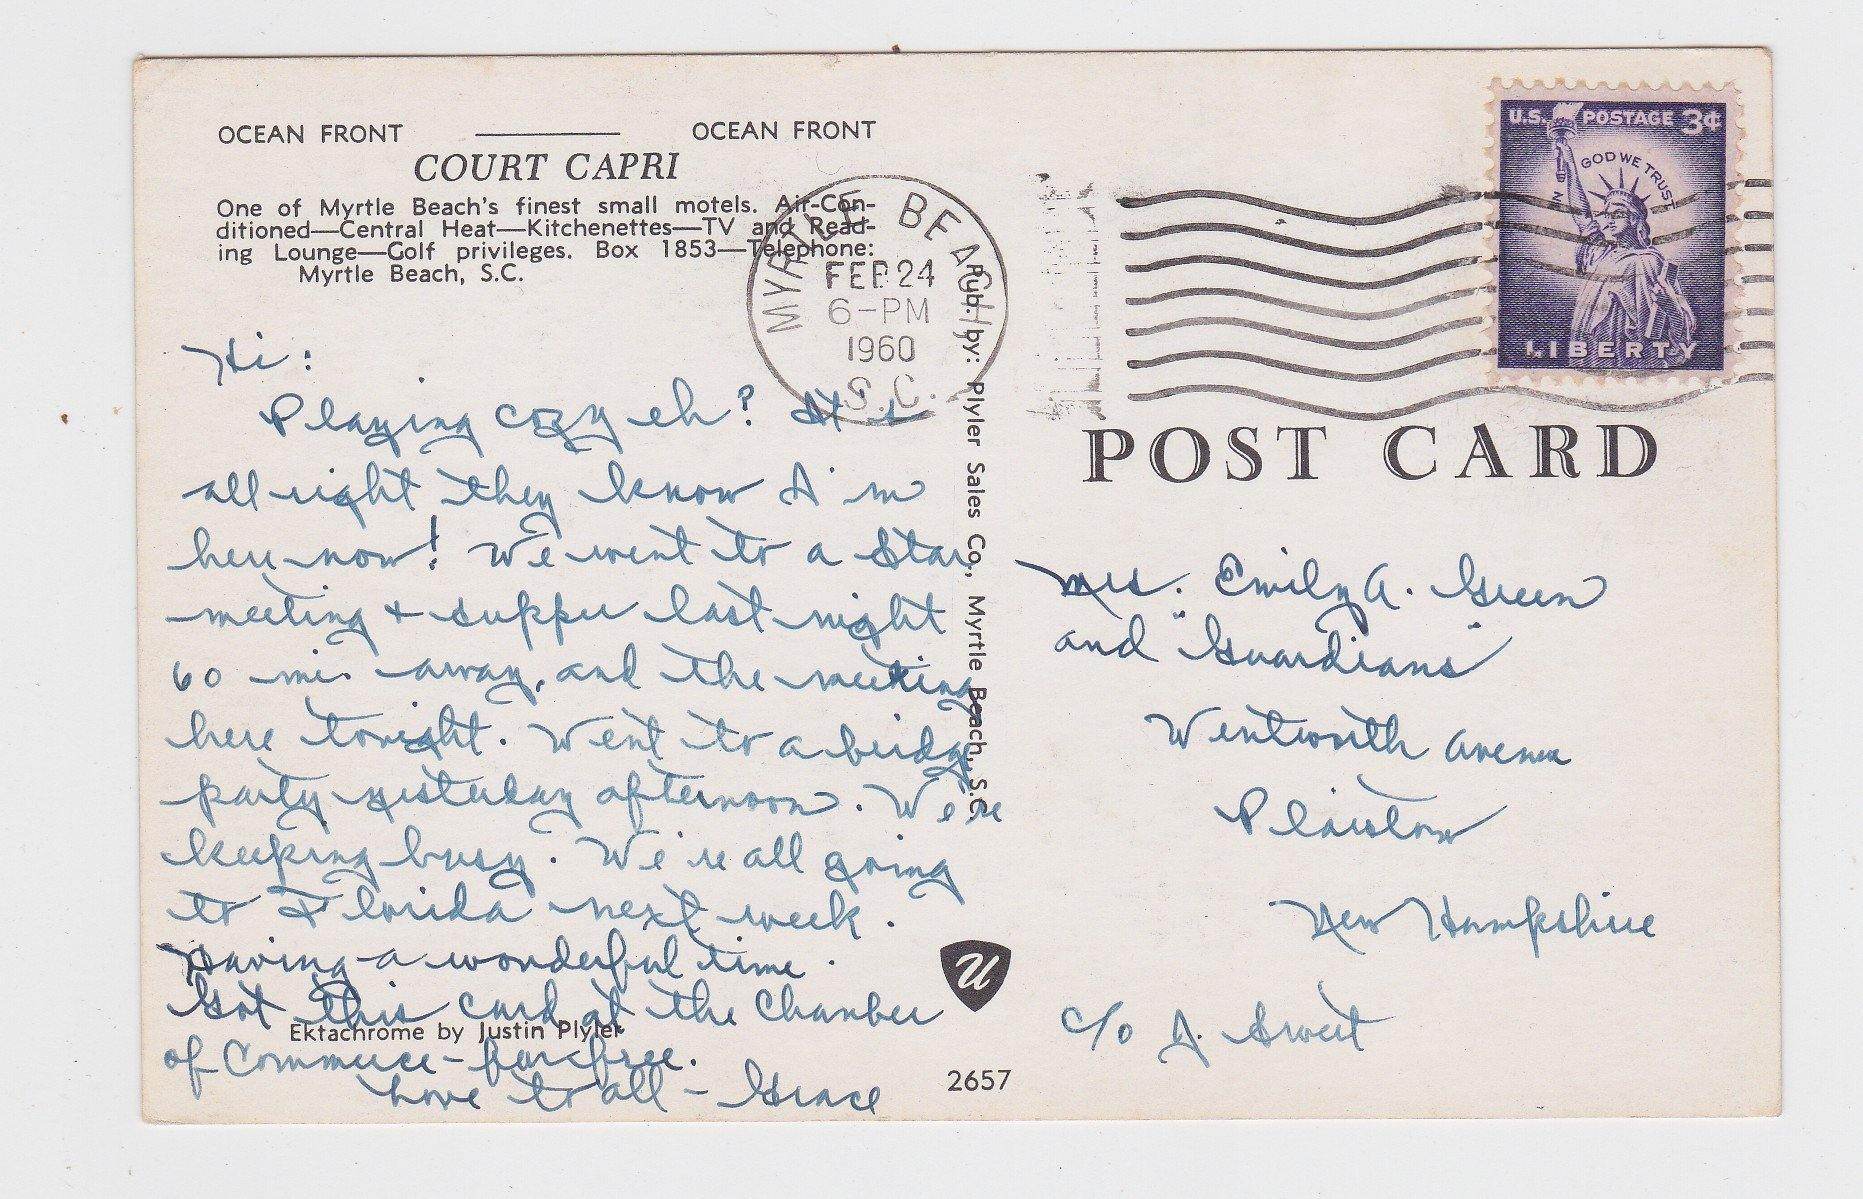 OCEAN FRONT OCEAN FRONT
COURT CAPRI
One of Myrtle Beach's finest small motels. Air-Con-
ditioned—Central Heat—Kitchenettes—TV and Read-
ing Lounge—Golf privileges. Box 1853—Telephone:
Myrtle Beach, S.C.
Hi:
Playing cozy eh? It's
all right they know I'm
here now! We went to a Star
meeting + supper last night
60 mi. away, and the meeting
here tonight. Went to a bridge
party yesterday afternoon. We're
keeping busy. We're all going
to Florida next week.
Having a wonderful time.
Got this card at the Chamber
Ektachrome by Justin Plyler
of Commerce - for free.
Love to all - Grace
Pub. by: Plyler Sales Co., Myrtle Beach, S.C.
U
2657
MYRTLE BEACH
FEB 24
6-PM
1960
S.C.
U.S. POSTAGE 3¢
IN GOD WE TRUST
LIBERTY
POST CARD
Mrs. Emily A. Green
and "Guardians"
Wentworth Avenue
Plaistow
New Hampshire
c/o A. Sweet